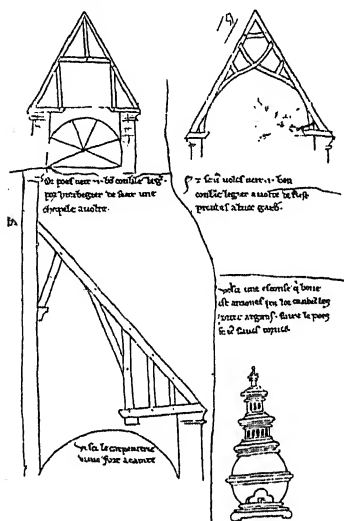 Or poes veir .i. bō conble legᵗ.
por h'rbegier de seur une
chapele a volte.
⁊ se ū voles veir .i. bon
conble legier a volte de fust
prendes aluec gard.
vesci une esconse q bone
est a mones por lor candelles
porter argans. faire le poes
se ū saves torner.
vesci le carpenterie
dune fort acainte